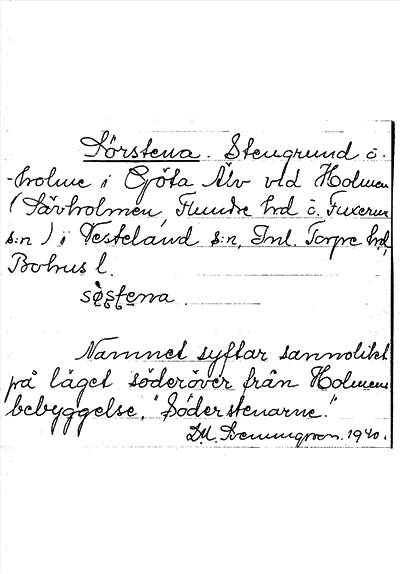 Sörstena. Stengrund o.
-holme i Göta Älv vid Holmen
(Sävholmen, Flundre hrd o. Fuxerna
s:n) i Västerland s:n, Inl. Torpe hrd,
Bohus l.
Namnet syftar sannolikt
på läget söderöver från Holmens
bebyggelse, "Söderstenarne."
1940.